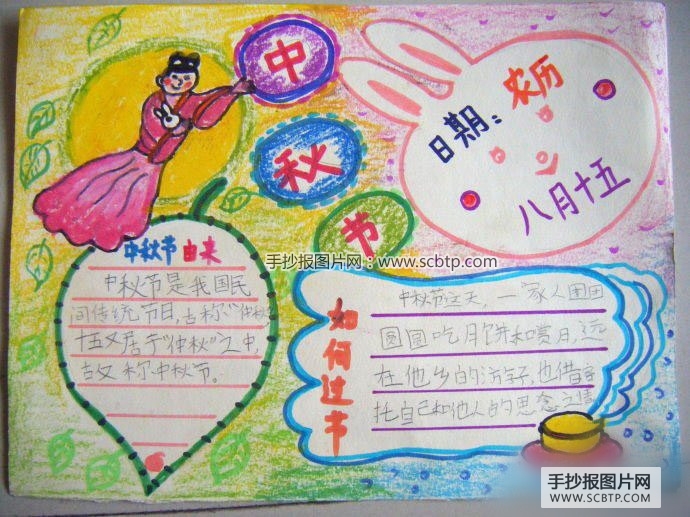 中秋节
日期：农历
八月十五
手抄报图片网：www.scbtp.com
中秋节由来
中秋节是我国民
间传统节日，古称“仲秋
十五又居于“仲秋”之中，
故又称中秋节。
如何过节
中秋节这天，一家人团团
圆圆吃月饼和赏月，远
在他乡的游子，也借
托自己和他人的思念之情
手抄报图片网
WWW.SCBTP.COM